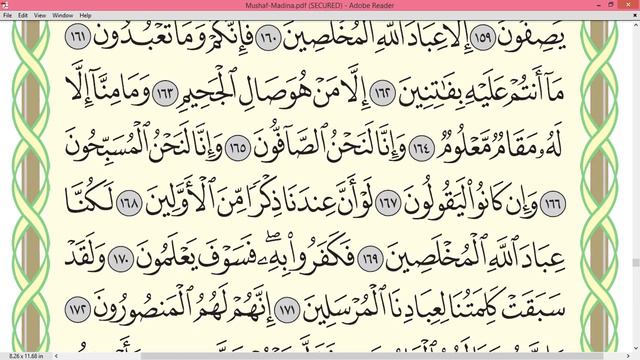 Mushaf-Madina.pdf (SECURED) - Adobe Reader
File Edit View Window Help
يَصِفُونَ ١٥٩ إِلَّا عِبَادَ ٱللَّهِ ٱلْمُخْلَصِينَ ١٦٠ فَإِنَّكُمْ وَمَا تَعْبُدُونَ ١٦١
مَآ أَنتُمْ عَلَيْهِ بِفَٰتِنِينَ ١٦٢ إِلَّا مَنْ هُوَ صَالِ ٱلْجَحِيمِ ١٦٣ وَمَا مِنَّآ إِلَّا
لَهُۥ مَقَامٌ مَّعْلُومٌ ١٦٤ وَإِنَّا لَنَحْنُ ٱلصَّآفُّونَ ١٦٥ وَإِنَّا لَنَحْنُ ٱلْمُسَبِّحُونَ
١٦٦ وَإِن كَانُوا۟ لَيَقُولُونَ ١٦٧ لَوْ أَنَّ عِندَنَا ذِكْرًا مِّنَ ٱلْأَوَّلِينَ ١٦٨ لَكُنَّا
عِبَادَ ٱللَّهِ ٱلْمُخْلَصِينَ ١٦٩ فَكَفَرُوا۟ بِهِۦ فَسَوْفَ يَعْلَمُونَ ١٧٠ وَلَقَدْ
سَبَقَتْ كَلِمَتُنَا لِعِبَادِنَا ٱلْمُرْسَلِينَ ١٧١ إِنَّهُمْ لَهُمُ ٱلْمَنصُورُونَ ١٧٢
8.26 x 11.68 in